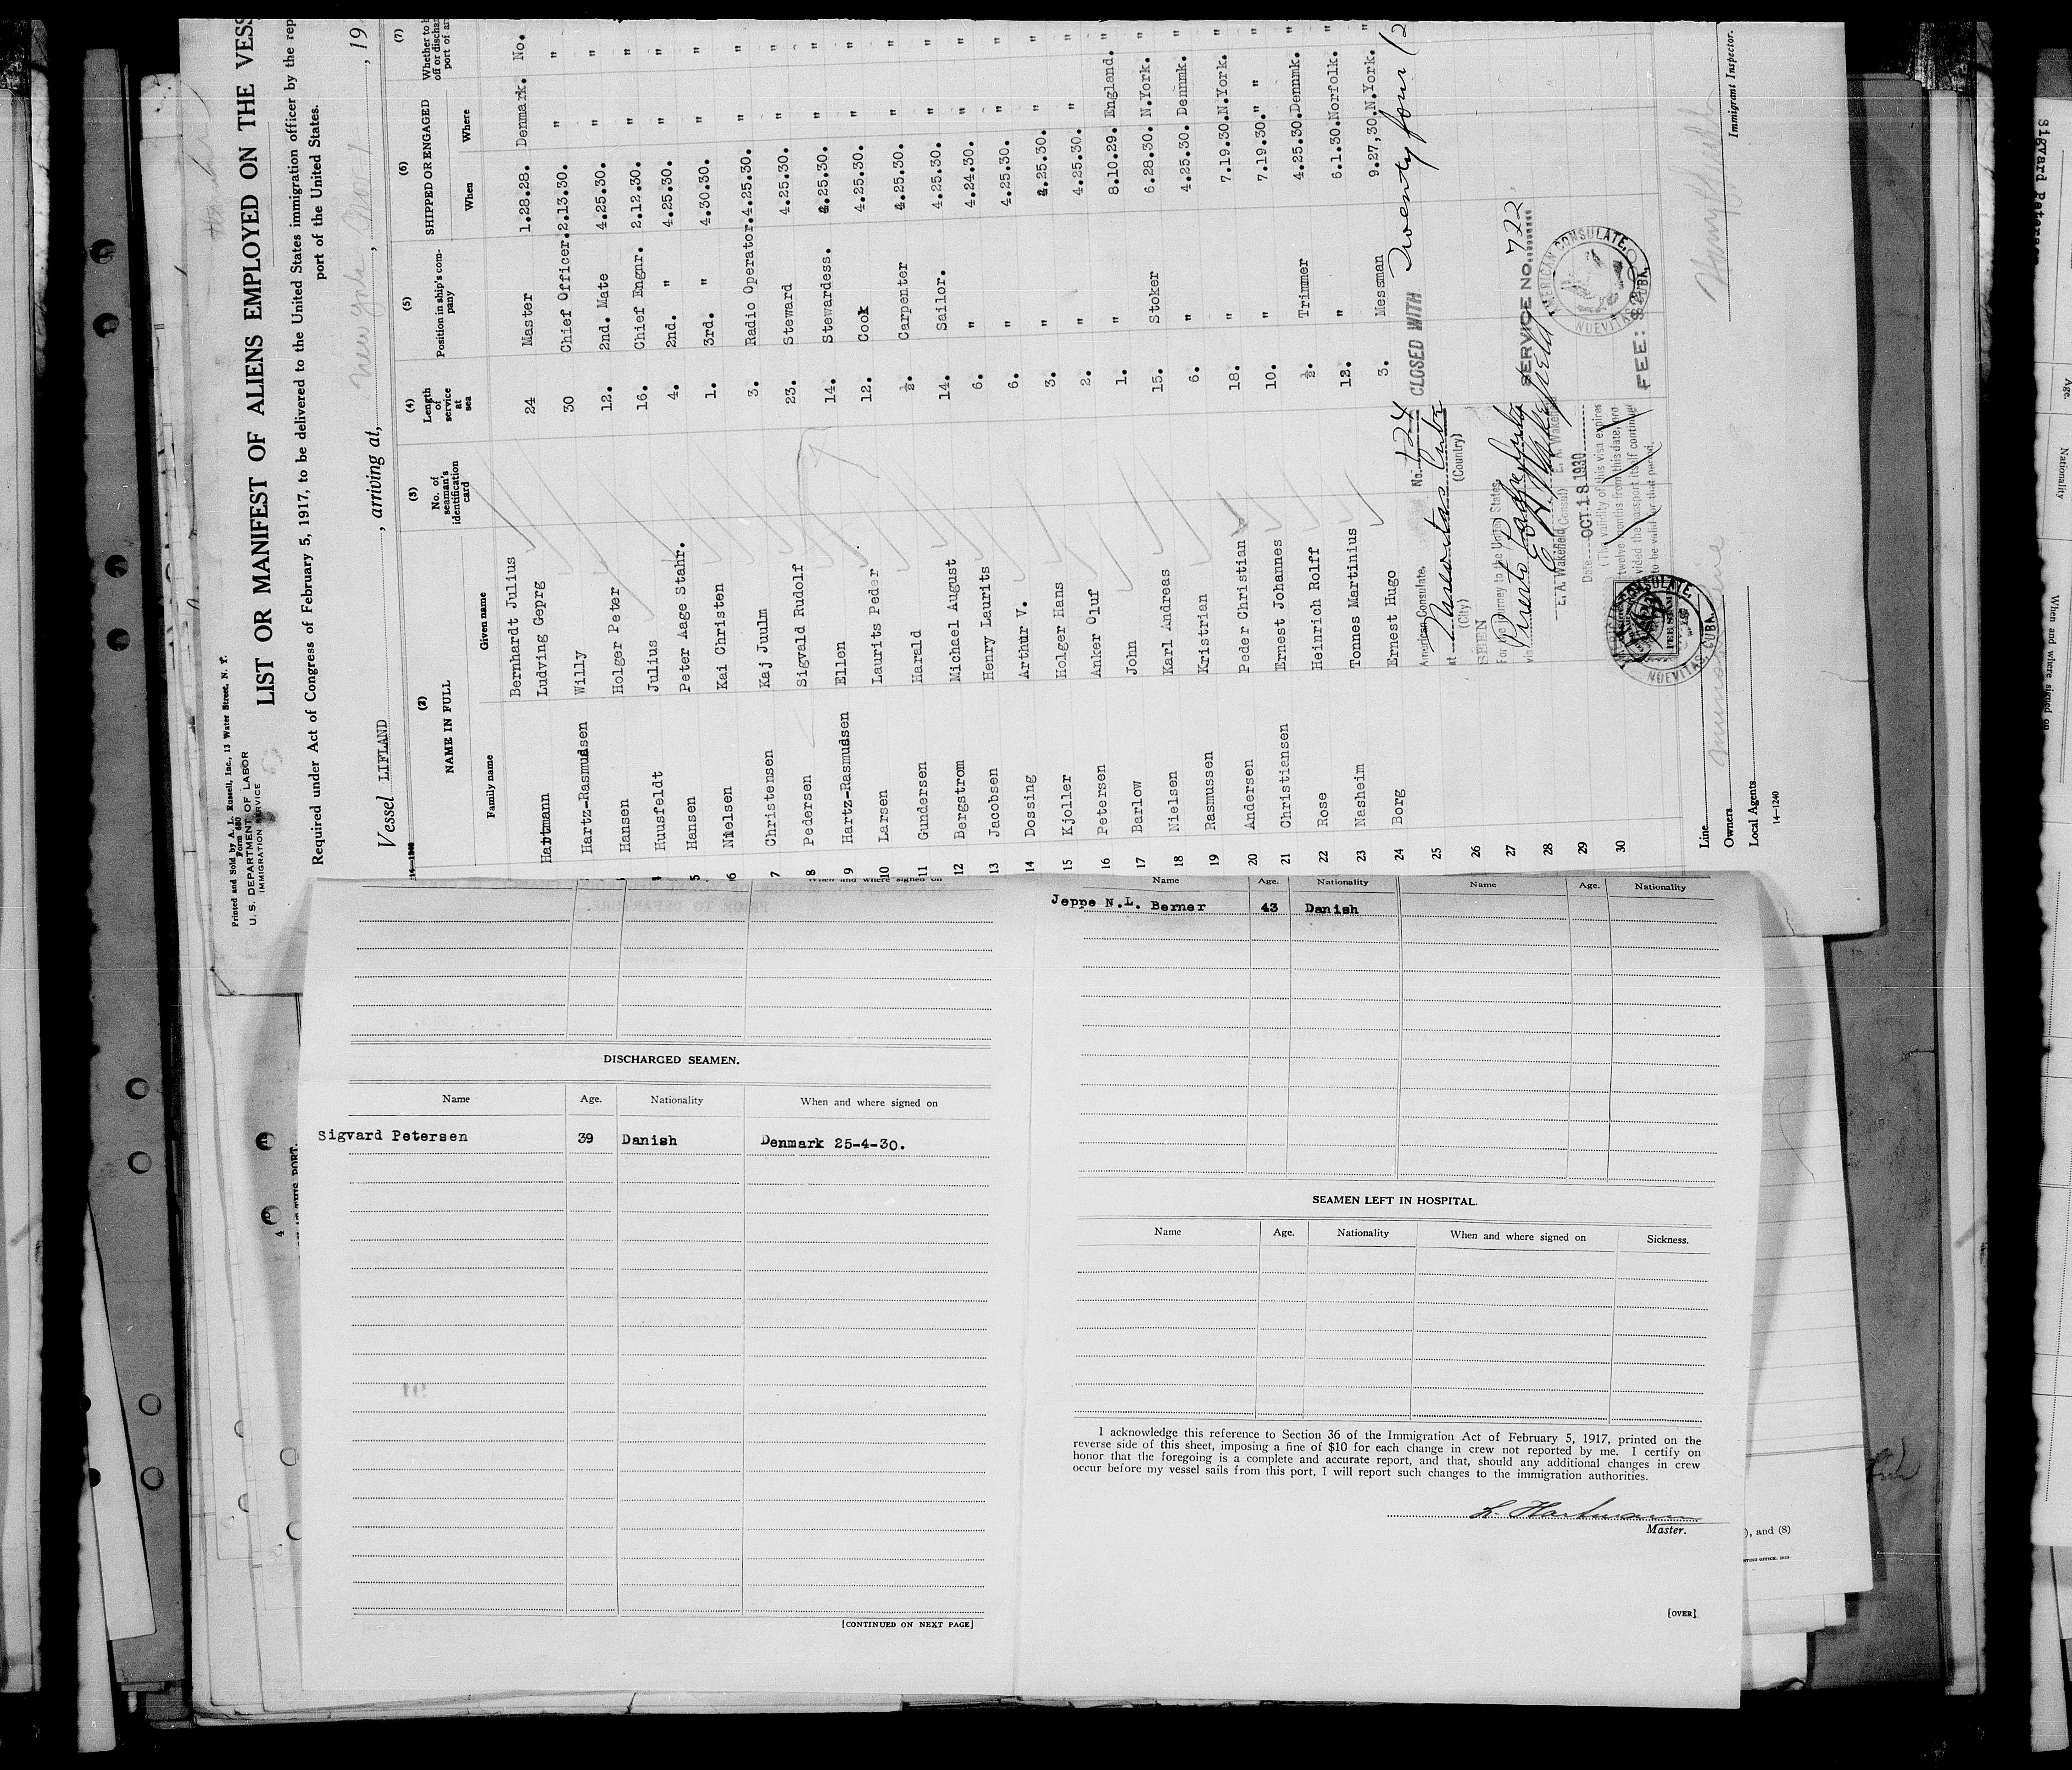 Printed and Sold by A. L. Russell, Inc., 13 Water Street, N. Y.
Form 680
U. S. DEPARTMENT OF LABOR
IMMIGRATION SERVICE
LIST OR MANIFEST OF ALIENS EMPLOYED ON THE VESS
Required under Act of Congress of February 5, 1917, to be delivered to the United States immigration officer by the rep
port of the United States.
Vessel LIFLAND , arriving at, New York , , 19
(2) (3) (4) (5) (6) (7)
NAME IN FULL No. of seaman's identification card Length of service at sea Position in ship's company SHIPPED OR ENGAGED
Family name Given name When Where
Bernhardt Julius
Hartmann Ludving Geprg 24 Master 1.28.28. Denmark. No.
Hartz-Rasmussen Willy 30 Chief Officer. 2.13.30. " "
Hansen Holger Peter 12. 2nd. Mate 4.25.30. " "
Huusfeldt Julius 16. Chief Engnr. 2.12.30. " "
5 Hansen Peter Aage Stahr. 4. 2nd. " 4.25.30. " "
6 Nielsen Kai Christen 1. 3rd. " 4.30.30. " "
7 Christensen Kaj Juulm 3. Radio Operator. 4.25.30. " "
8 Pedersen Sigvald Rudolf 23. Steward 4.25.30. " "
9 Hartz-Rasmussen Ellen 14. Stewardess. 4.25.30. " "
10 Larsen Laurits Peder 12. Cook 4.25.30. " "
11 Gundersen Harald ½. Carpenter 4.25.30. " "
12 Bergstrom Michael August 14. Sailor. 4.25.30. " "
13 Jacobsen Henry Laurits 6. " 4.24.30. " "
14 Dossing Arthur V. 6. " 4.25.30. " "
15 Kjoller Holger Hans 3. " 4.25.30. " "
16 Petersen Anker Oluf 2. " 4.25.30. " "
17 Barlow John 1. " 8.10.29. England. "
18 Nielsen Karl Andreas 15. Stoker 6.28.30. N.York. "
19 Rasmussen Kristrian 6. " 4.25.30. Denmmk. "
20 Andersen Peder Christian 18. " 7.19.30. N.York. "
21 Christiansen Ernest Johannes 10. " 7.19.30. " " "
22 Rose Heinrich Rolff ½. Trimmer 4.25.30. Denmmk. "
23 Nasheim Tonnes Martinius 12. " 6.1.30. Norfolk. "
24 Borg Ernest Hugo 3. Messman 9.27,30. N.York. "
25
26
27
28
29
30
CLOSED WITH Twenty four (2
American Consulate, No. 124
at Nuevitas Cuba
(City) (Country)
SEEN
For the journey to the United States,
via
SERVICE NO. 722
E. A. Wakefield
E. A. Wakefield, Consul
Date OCT 18 1930
(The validity of this visa expires
twelve months from this date, pro
vided the passport itself continues
to be valid for that period.
AMERICAN CONSULATE, NUEVITAS, CUBA.
FEE:
NUEVITAS, CUBA.
Line
Owners
Local Agents
14—1240
Immigrant Inspector.
Name Age. Nationality Name Age. Nationality
Jeppe N.L. Berner 43 Danish
DISCHARGED SEAMEN.
Name Age. Nationality When and where signed on
Sigvard Petersen 39 Danish Denmark 25-4-30.
[CONTINUED ON NEXT PAGE]
SEAMEN LEFT IN HOSPITAL.
Name Age. Nationality When and where signed on Sickness.
I acknowledge this reference to Section 36 of the Immigration Act of February 5, 1917, printed on the
reverse side of this sheet, imposing a fine of $10 for each change in crew not reported by me. I certify on
honor that the foregoing is a complete and accurate report, and that, should any additional changes in crew
occur before my vessel sails from this port, I will report such changes to the immigration authorities.
L. Hartmann
Master.
[OVER]
), and (8)
Sigvard Petersen
Age.
Nationality
When and where signed on